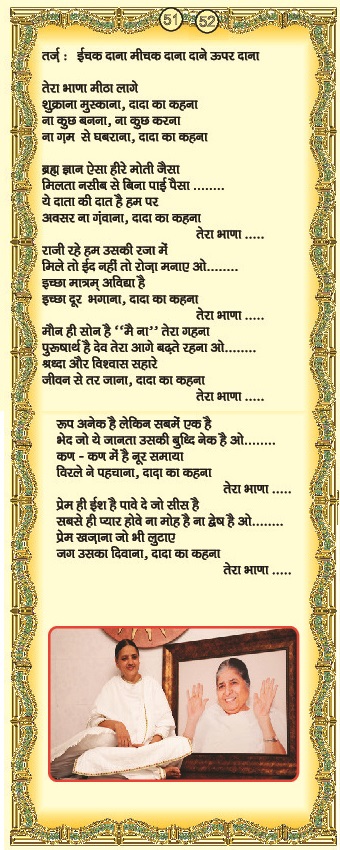 51 52
तर्ज़ : ईचक दाना मीचक दाना दाने ऊपर दाना
तेरा भाणा मीठा लागे
शुक्राना मुस्काना, दादा का कहना
ना कुछ बनना, ना कुछ करना
ना ग़म से घबराना, दादा का कहना
ब्रह्म ज्ञान ऐसा हीरे मोती जैसा
मिलता नसीब से बिना पाई पैसा ........
ये दाता की दात है हम पर
अवसर ना गंवाना, दादा का कहना
तेरा भाणा .....
राजी रहे हम उसकी रजा में
मिले तो ईद नहीं तो रोज़ा मनाए ओ........
इच्छा मात्रम् अविद्या है
इच्छा दूर भगाना, दादा का कहना
तेरा भाणा .....
मौन ही सोन है “मै ना” तेरा गहना
पुरूषार्थ है देव तेरा आगे बढ़ते रहना ओ........
श्रध्दा और विश्वास सहारे
जीवन से तर जाना, दादा का कहना
तेरा भाणा .....
रूप अनेक है लेकिन सबमें एक है
भेद जो ये जानता उसकी बुध्दि नेक है ओ........
कण - कण में है नूर समाया
विरले ने पहचाना, दादा का कहना
तेरा भाणा .....
प्रेम ही ईश है पावे दे जो सीस है
सबसे ही प्यार होवे ना मोह है ना द्वेष है ओ........
प्रेम खज़ाना जो भी लुटाए
जग उसका दिवाना, दादा का कहना
तेरा भाणा .....